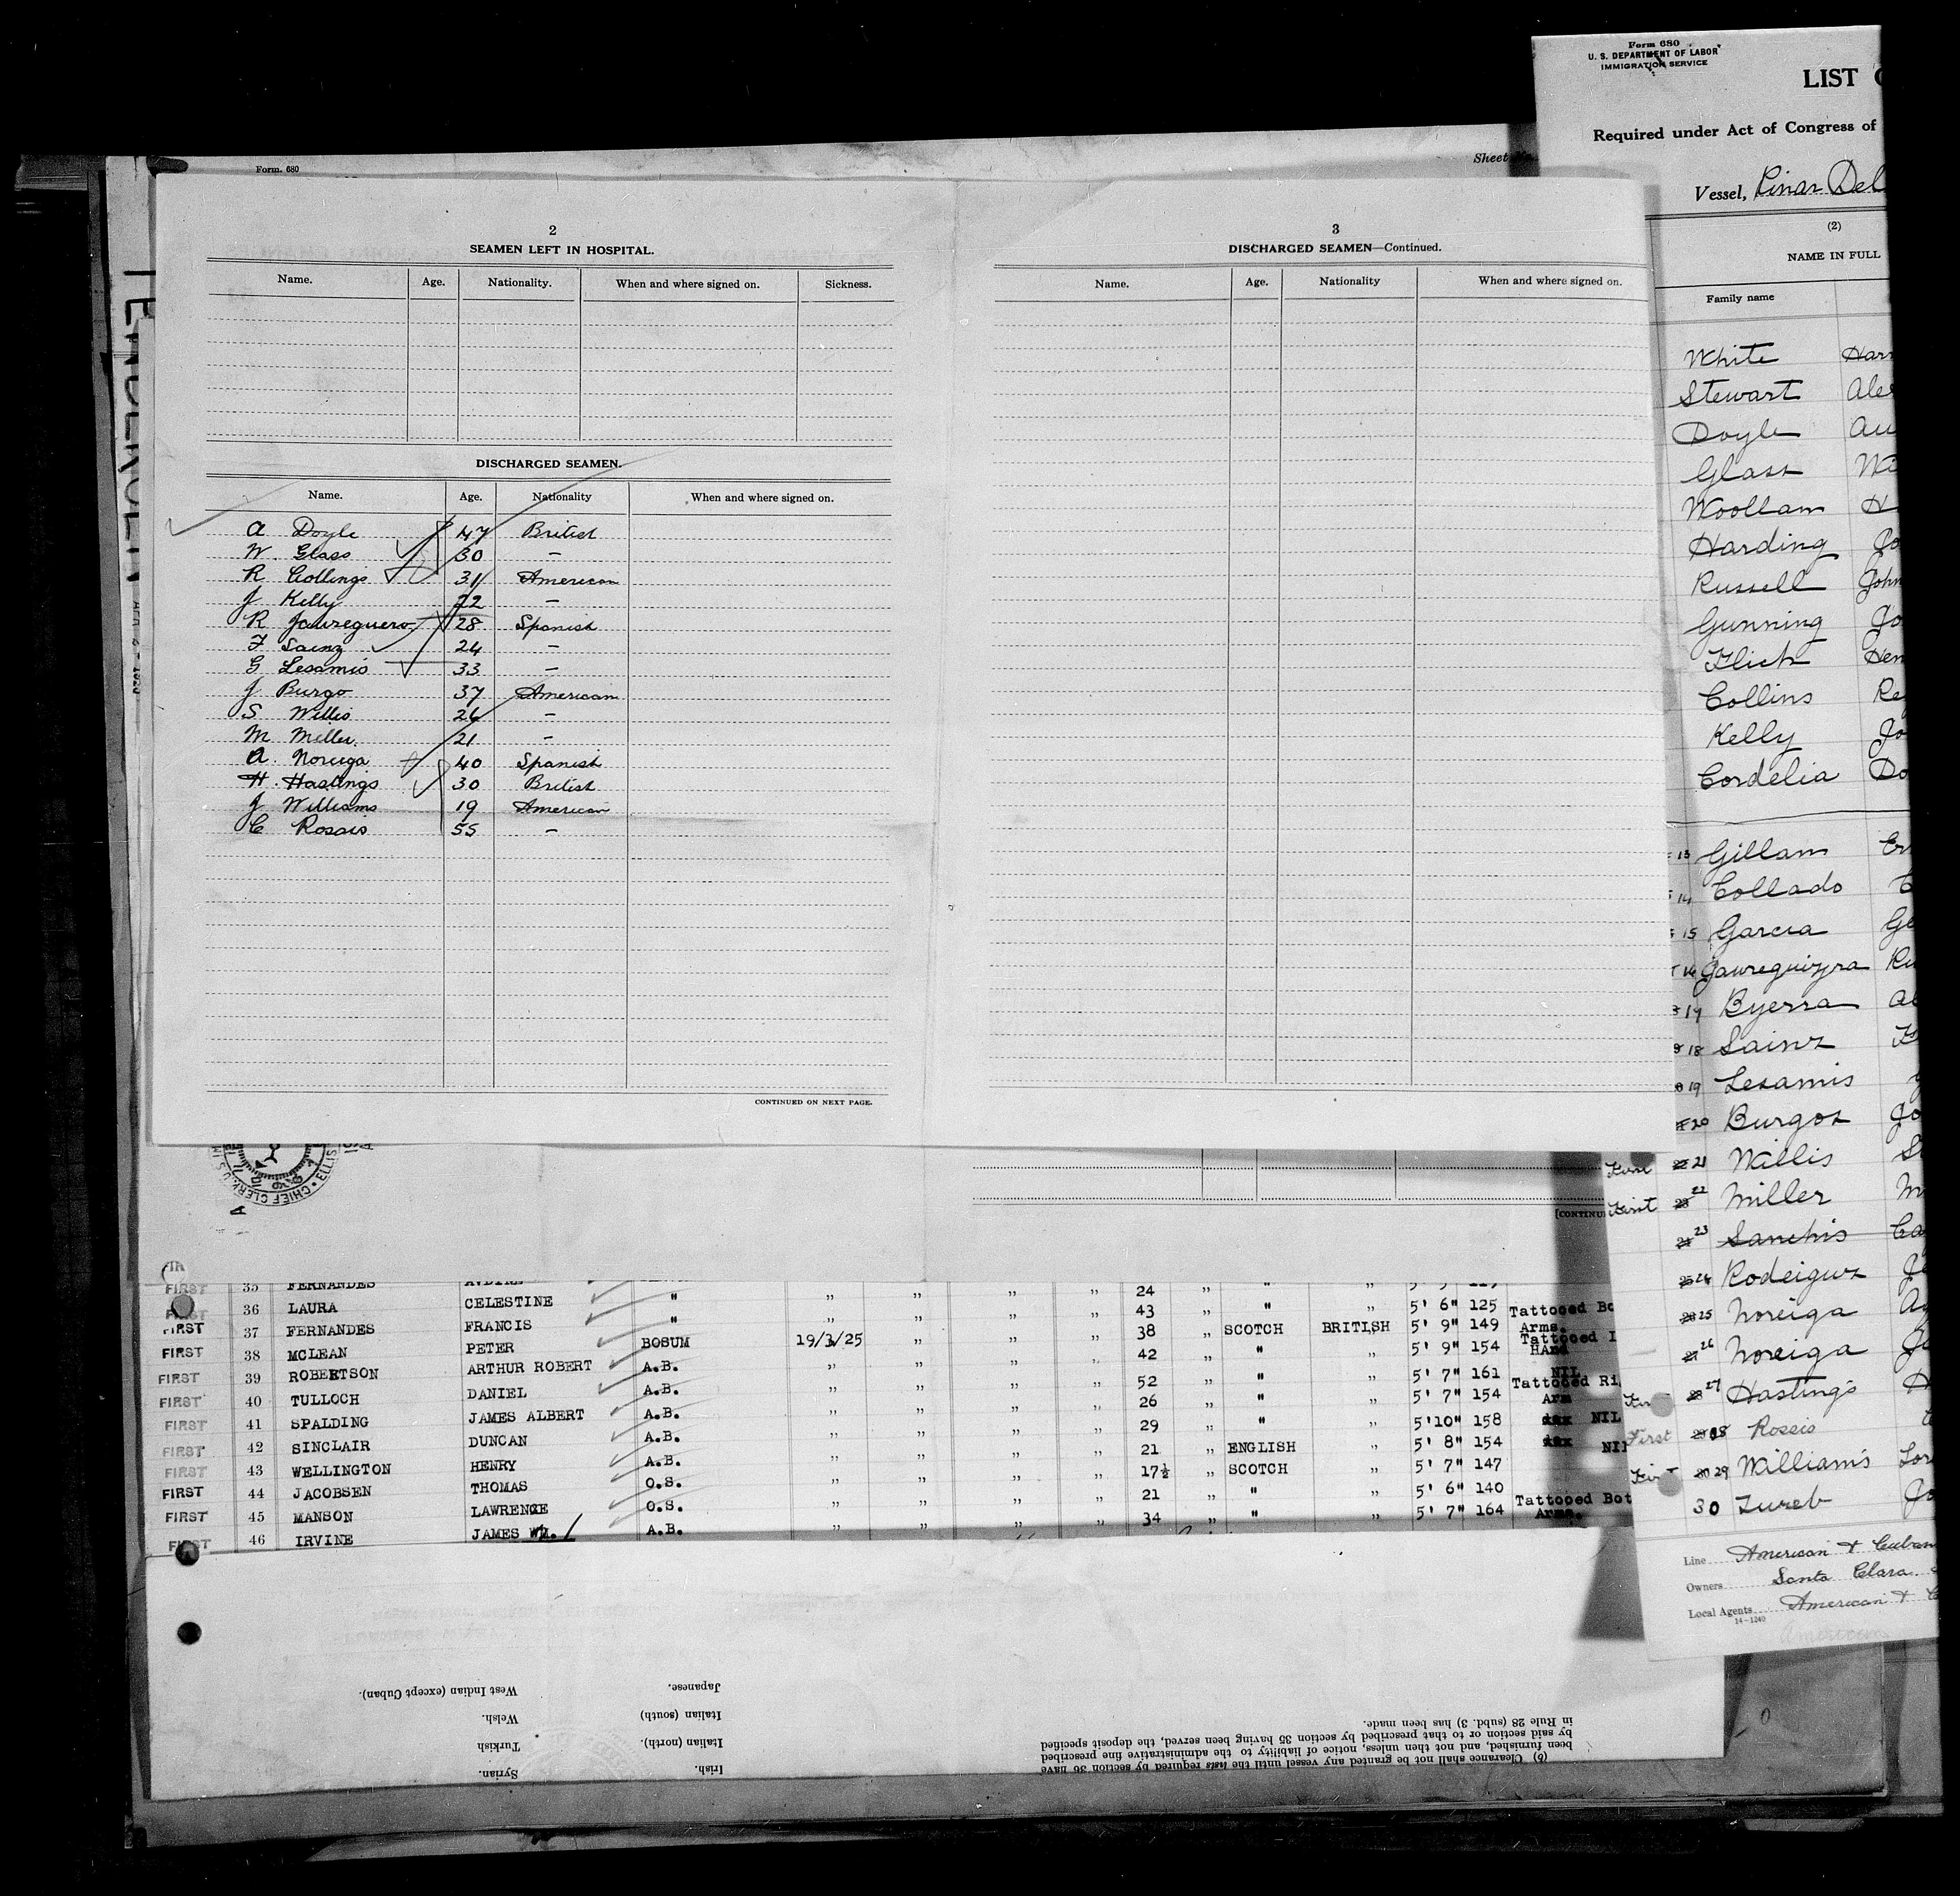 Form. 680
Sheet No.
2
SEAMEN LEFT IN HOSPITAL.
Name. Age. Nationality. When and where signed on. Sickness.
DISCHARGED SEAMEN.
Name. Age. Nationality When and where signed on.
A Doyle 47 British
W. Glass 30 –
R Collings 31 American
J Kelly 22 –
R Jaureguero 28 Spanish
F Sainz 24 –
G Lesamis 33 –
J Burgo 37 American
S Willis 26 –
M Miller. 21 –
A. Noreiga 40 Spanish
H. Hastings 30 British
J Williams 19 American
C Rosais 55 –
CONTINUED ON NEXT PAGE.
3
DISCHARGED SEAMEN—Continued.
Name. Age. Nationality When and where signed on.
[CONTINU
CHIEF CLERK, U.S.
ELLIS
FIRST 35 FERNANDES 24 "
FIRST 36 LAURA CELESTINE " " " " " 43 " " " 5' 6" 125 Tattooed Bo
FIRST 37 FERNANDES FRANCIS " " " " " 38 " SCOTCH BRITISH 5' 9" 149 Arms.
FIRST 38 MCLEAN PETER BOSUM 19/3/25 " " " 42 " " " 5' 9" 154 Tattooed
HAnd
FIRST 39 ROBERTSON ARTHUR ROBERT A.B. " " " " 52 " " " 5' 7" 161 NIL
FIRST 40 TULLOCH DANIEL A.B. " " " " 26 " " " 5' 7" 154 Tattooed Ri
Arm
FIRST 41 SPALDING JAMES ALBERT A.B. " " " " 29 " " " 5'10" 158 NIL
FIRST 42 SINCLAIR DUNCAN A.B. " " " " 21 " ENGLISH " 5' 8" 154 NIL
FIRST 43 WELLINGTON HENRY A.B. " " " " 17½ " SCOTCH " 5' 7" 147
FIRST 44 JACOBSEN THOMAS O.S. " " " " 21 " " " 5' 6" 140
FIRST 45 MANSON LAWRENCE O.S. " " " " 34 " " " 5' 7" 164 Tattooed Bot
Arms.
FIRST 46 IRVINE JAMES WM. A.B.
West Indian (except Cuban).
Welsh.
Turkish
Syrian.
Japanese.
Italian (south)
Italian (north).
Irish.
(b) Clearance shall not be granted any vessel until the lists required by section 36 have
been furnished, and not then unless, notice of liability to the administrative fine prescribed
by said section or to that prescribed by section 35 having been served, the deposit specified
in Rule 28 (subd. 3) has been made.
Form 680
U. S. DEPARTMENT OF LABOR
IMMIGRATION SERVICE
LIST
Required under Act of Congress of
Vessel, Pinar Del
(2)
NAME IN FULL
Family name
White Harr
Stewart Ale
Doyle Au
Glass Wi
Woollam H
Harding Jo
Russell John
Gunning Jo
Flick Hen
Collins Re
Kelly Jo
Cordelia Do
13 Gillam Er
14 Collado C
15 Garcia Ge
16 Jaureguizra Ru
17 Byerra Al
18 Sainz F
19 Lesamis G
20 Burgos Jo
First 21 Willis St
First 22 Miller M
23 Sanchis Ca
24 Rodeiguez Je
25 Noreiga
26 Noreiga
27 Hastings H
First 28 Rossis
First 29 Williams Lor
30 Zureb Jo
Line American & Cuban
Owners Santa Clara
Local Agents American & C
14—1240
American